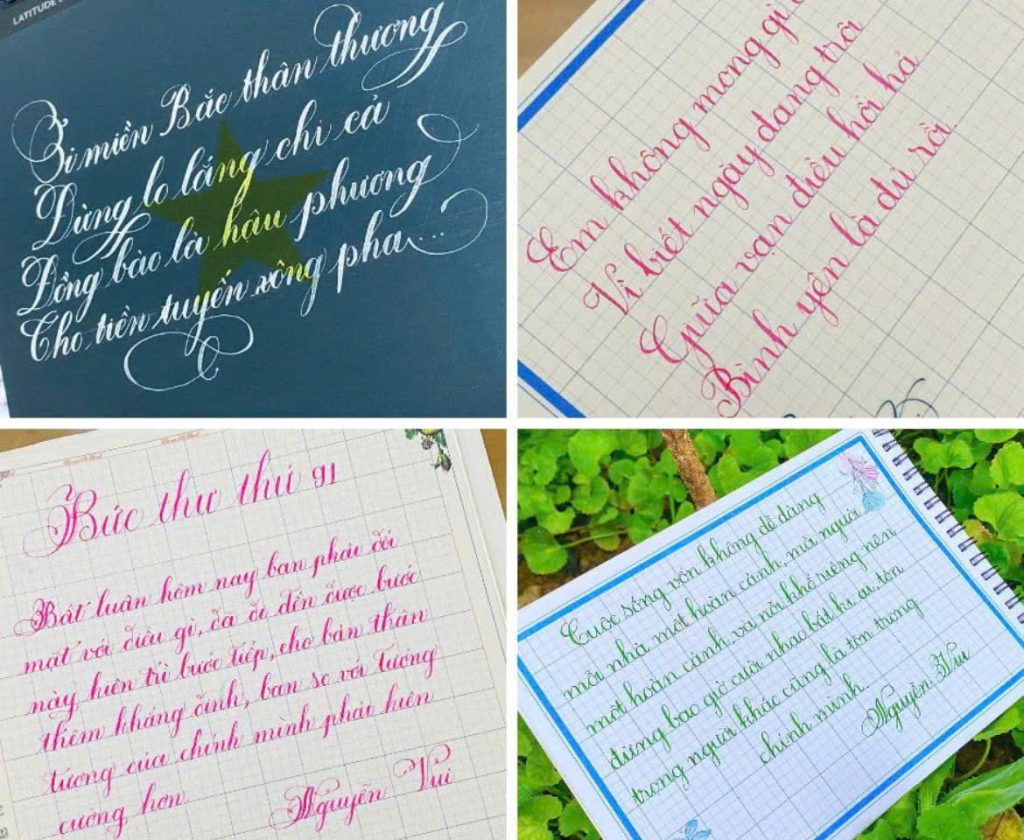 LATITUDE
Ơi miền Bắc thân thương
Đừng lo lắng chi cả
Đồng bào là hậu phương
Cho tiền tuyến xông pha...
Em không mong gì
Vì biết ngày đang trôi
Giữa vạn điều hối hả
Bình yên là đủ rồi.
Bức thư thứ 91
Bất luận hôm nay bạn phải đối
mặt với điều gì, đã đi đến được bước
này kiên trì bước tiếp, cho bản thân
thêm khẳng định, bạn so với tưởng
tượng của chính mình phải kiên
cường hơn
Nguyễn Vui
Cuộc sống vốn không dễ dàng
mỗi nhà một hoàn cảnh, mỗi người
một hoàn cảnh và nỗi khổ riêng nên
đừng bao giờ cười nhạo bất kì ai, tôn
trọng người khác cũng là tôn trọng
chính mình.
Nguyễn Vui